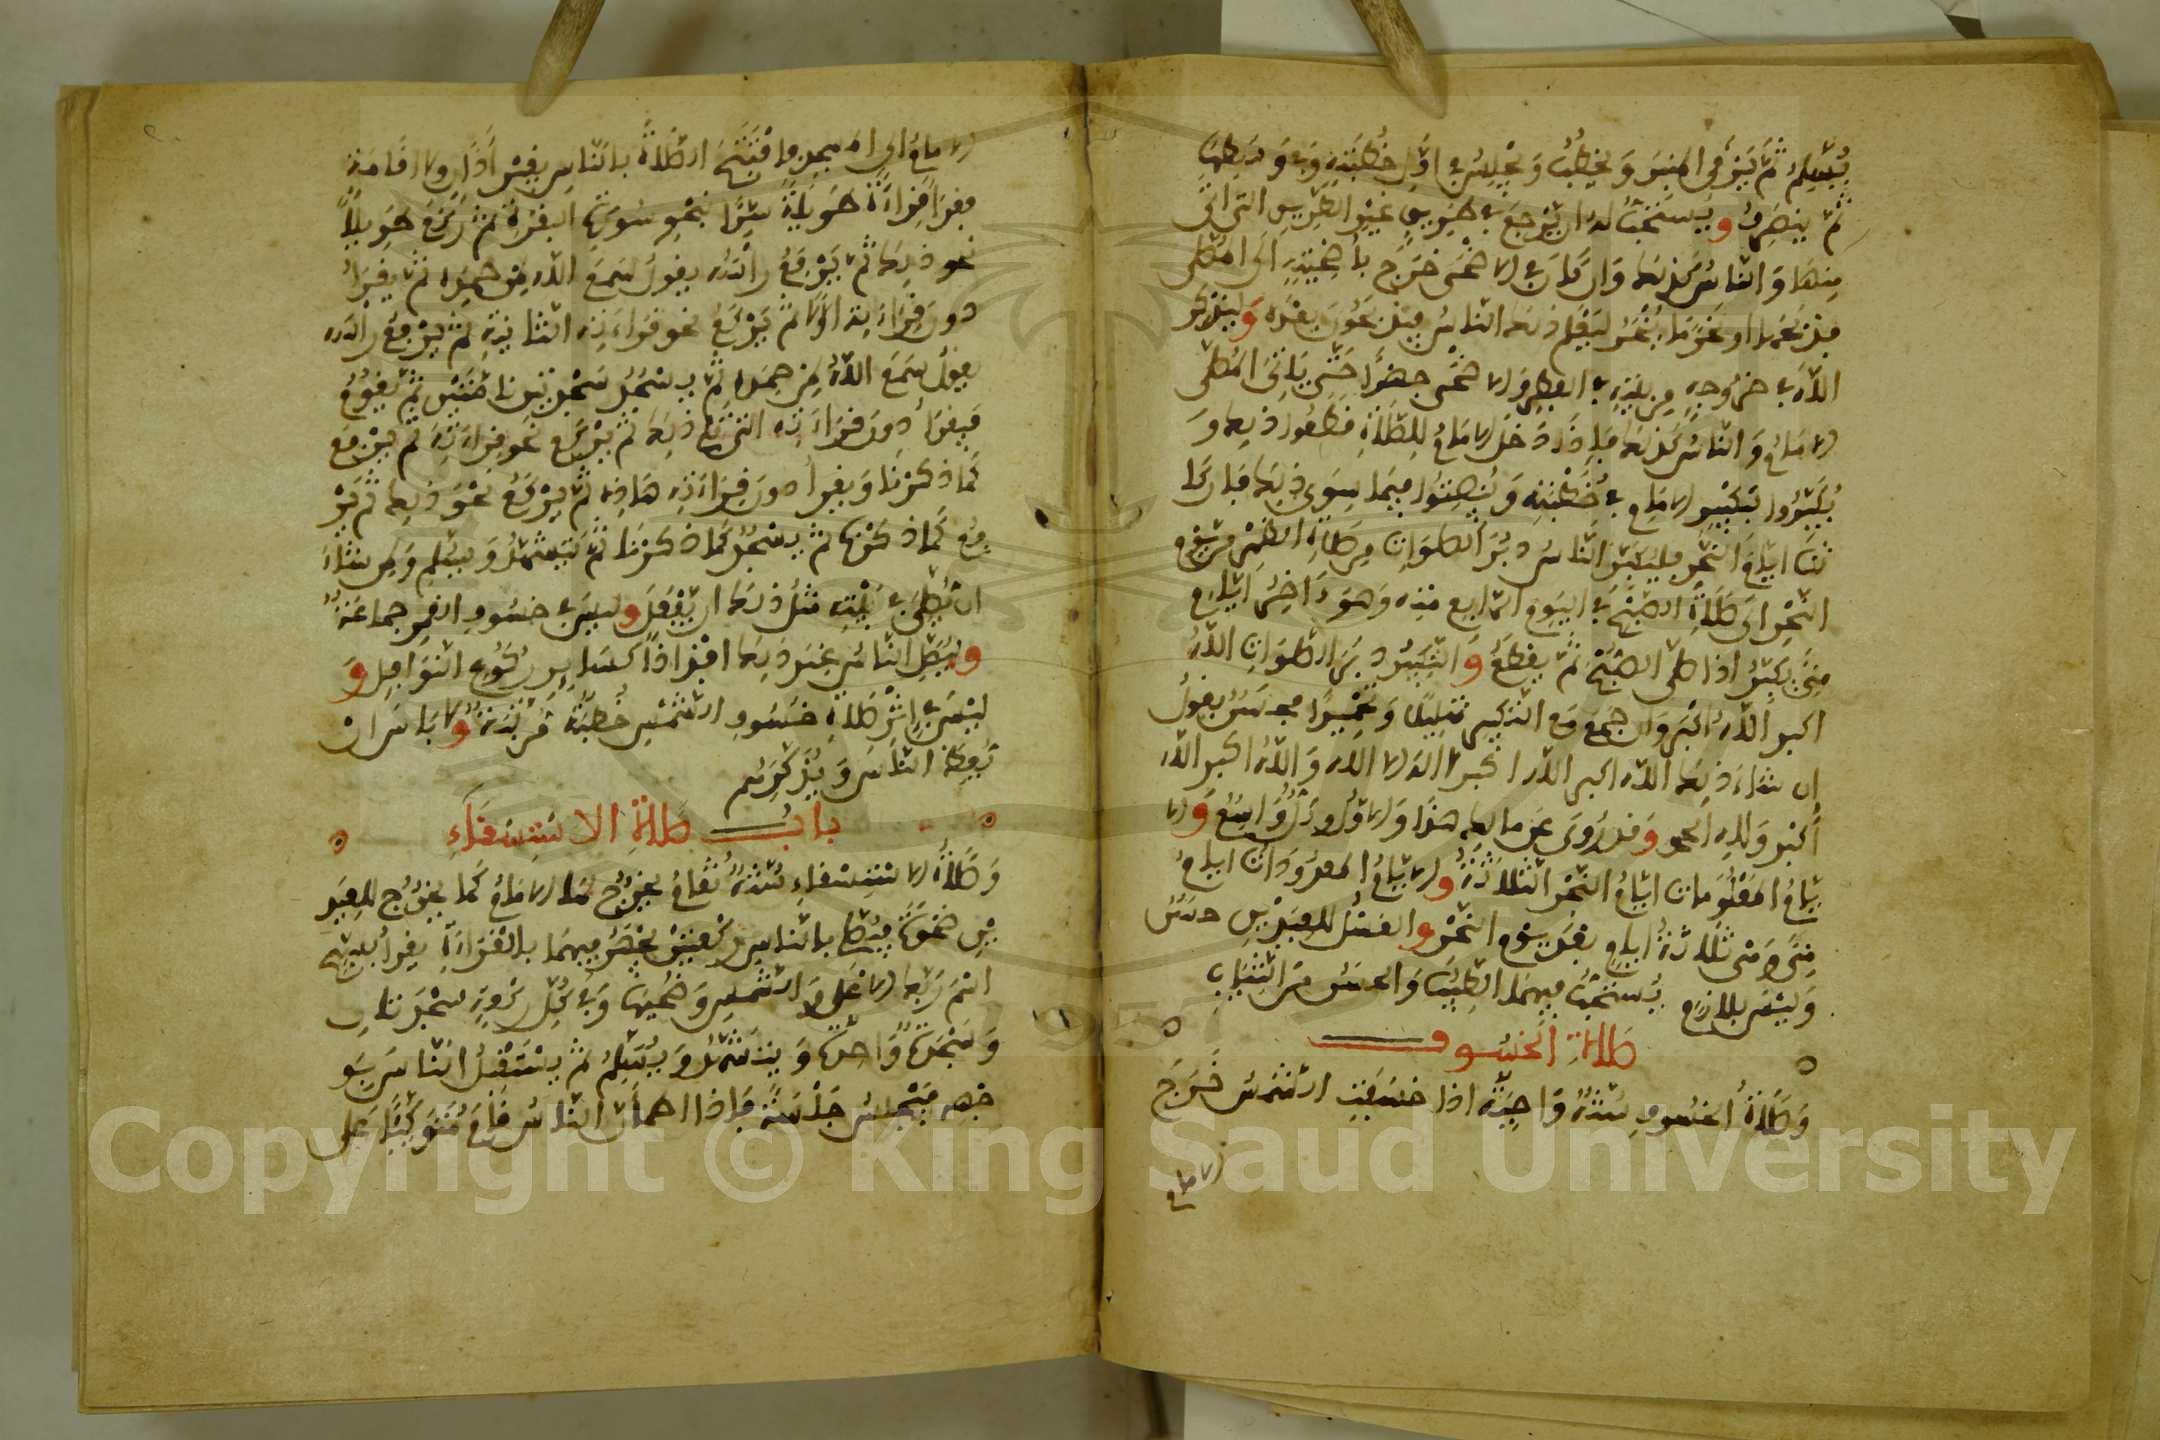 يُسَلِّمُ ثُمَّ يَرْقَى المنبر وَيخطُبُ وَيجْلِسُ في اوَّلِ خُطْبَتِهِ وَفي وَسَطِهَا
ثُمّ ينصَرِفُ ويُستَحَبُّ لهُ ان يّرْجِعَ في طَرِيقٍ غيْرِ الطَّرِيقِ التي اتى
مِنهَا وَالنّاسُ كذلك وَان كَانَ في الاضْحَى خَرَجَ بأضْحِيَتِهِ الَى المُصَلَّى
فذبَحَهَا او نحَرَهَا يُنْحَرُ ليَعْلَمَ ذلك النّاسُ فيَذبَحُونَ بعْدَه وَليَذكُرِ
اللّهَ في خرُوجِهِ من بَيْتِهِ في الفطْرِ وَالاضْحى جَهْرًا حَتّى يَاتيَ المُصَلَّى
الامَامُ وَالنّاسُ كذلك فإِذَا دَخلَ الامَامُ لِلصَّلَاةِ قَطَعُوا ذلك وَ
يُكَبِّرُونَ بتكْبِيرِ الامَامِ في خُطْبَتِهِ وَيُنْصِتُونَ فِيمَا سِوَى ذلك فإِن كا
نَتَ ايّامَ النّحْرِ فليُكبِّرِ النّاسُ دُبُرَ الصلوَاتِ مِن صَلاةِ الظهْرِ مِن يّوْمِ
النّحْرِ الَى صَلَاةِ الصّبْحِ في اليَومِ الرّابِعِ مِنْه وَهوَ ءَاخِرُ ايّامِ
مِنًى يكَبِّرُ اذا صَلّى الصّبْحَ ثُمّ يقطَعُ وَالتّكبِيرُ دبُرَ الصّلوَاتِ اللّهُ
اكبر اللّهُ اكْبَر وَان جَمَعَ مَع التكبير تهلِيلًا وَتحْمِيدًا فحسَنٌ يقولُ
ان شاءَ ذلك اللّه اكبر اللّه اكبر لا اله الا الله وَاللّهُ اكبر اللّه
أَكبرُ وَللهِ الحمد وَقد رُوِيَ عَن مالك هذَا وَالاوّلُ وَالكُلُّ وَاسِعٌ وَالا
يّامُ المَعْلُومَاتُ ايّامُ النّحْرِ الثَّلَاثَةُ وَالايّامُ المَعدُودَاتُ ايّامُ
مِنًى وَهْيَ ثَلَاثَةُ ايّامٍ بعْدَ يَوْمِ النّحْرِ وَالغسْلُ للعِيدَيْنِ حسَنٌ
وَليْسَ بلازِمٍ يُستحَبُّ فيهِمَا الطِّيبُ وَالحسَنُ مِنَ الثِّيَابِ
صَلاةِ الخُسُوف
وَصَلَاةُ الخسُوفِ سُنّةٌ وَاجِبَةٌ اذا خسَفَتِ الشّمْسُ خَرَجَ
الامام
الامَامُ الى المسجد فافتَتَحَ الصّلَاةَ بالنّاسِ بغيْرِ أَذَانٍ وَلا اقَامَةٍ
فقرَأَ قِرَاءَةً طَوِيلَةً سِرًّا بنَحْوِ سُورَةِ البَقرَةِ ثُمّ يَرْكَعُ طَوِيلًا
نحو ذلك ثُمّ يَرْفعُ رَاْسَه يقولُ سَمِعَ اللّه لِمن حَمِدَه ثُمّ يقرَأُ
دونَ قِرَاءَتِهِ الاُولَى ثُمّ يَرْكَعُ نحو قرَاءَتِهِ الثَّانِيَةِ ثُمّ يرْفعُ رَاْسَه
يقولُ سَمِعَ اللّهُ لِمن حَمِدَه ثُمّ يسْجُدُ سَجْدَتَيْنِ تامَّتَيْن ثُمّ يَقُومُ
فَيقرَأُ دونَ قرَاءَتِه التي تَلِي ذلك ثُمّ يَرْكَع نحو قِرَاءَتِهِ ثُمّ يرْفع
كَمَا ذكرْنَا وَيقرَأُ دونَ قِرَاءَتِهِ هَاذِه ثُمّ يرْكَعُ نحْوَ ذلك ثُم يَرْ
فع كَمَا ذكرْنا ثُمّ يسْجُدُ كَمَا ذكرْنا ثُمّ يَتشَهّدُ وَيسَلِّم وَلمن شاءَ
ان يّصَلِّيَ في بَيْتِه مثلَ ذلك ان يّفْعَلَ وليسَ في خسُوفِ القمَرِ جماعَةٌ
وليُصَلِّ النّاسُ عندَ ذلك افْذَاذًا كسَايِرِ رُكُوعِ النّوَافِلِ وَ
ليْسَ في اثْرِ صَلاةِ خسُوفِ الشّمْسِ خُطْبَةٌ مُرَتّبَةٌ وَلا بَاسَ انْ
يَعِظَ النّاسَ وَيُذكِّرَهُم
بابُ صَلاةِ الاسْتِسْقَاءِ
وَصَلَاةُ الاسْتِسْقاءِ سُنّةٌ تُقامُ يخرُجُ لهَا الامَامُ كَما يخرُجُ للعِيدَ
يْنِ ضَحْوَةً فيُصَلي بالنّاسِ رَكْعَتَيْنِ يجْهَرُ فِيهِمَا بالقرَاءَةِ يقرأُ بسَبِّحِ
اسْمَ رَبِّكَ الاعْلَى وَالشّمْسِ وَضُحَيهَا وَفي كُلِّ رَكْعَةٍ سجْدَتانِ
وَرَكْعَةٌ وَّاحِدَةٌ وَيتشَهّدُ وَيُسَلِّمُ ثُمّ يسْتَقْبِلُ النّاسَ بِوَ
جْهِه فيَجْلِسُ جَلْسَةً فإِذا اطمأَنّ النّاسُ قامَ مُتَوَكِّئًا عَلَى